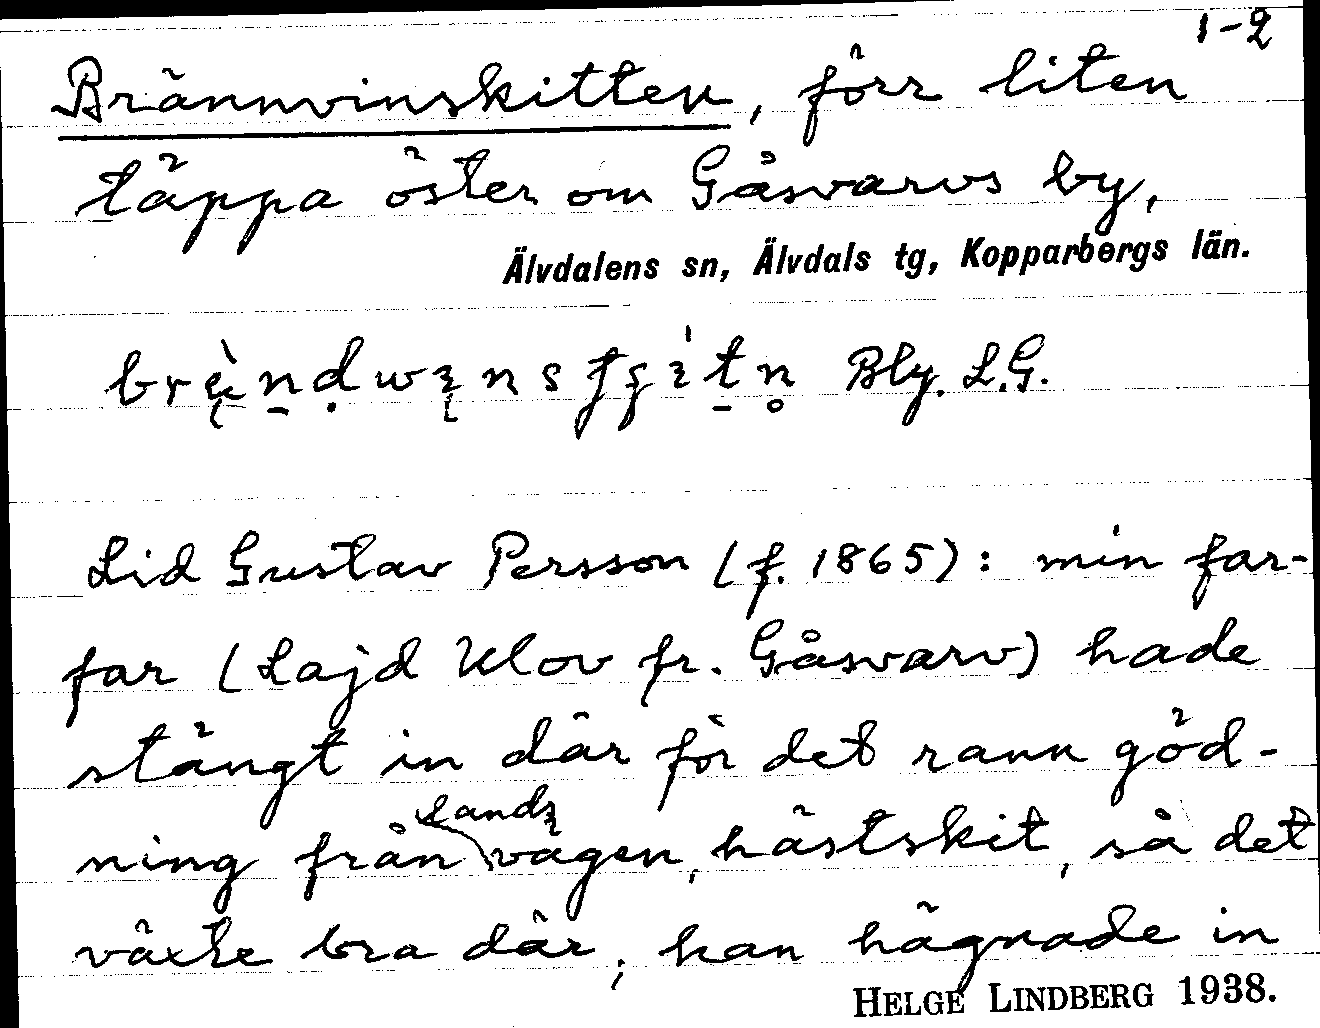 1-2
Brännvinskitten, förr liten
täppa öster om Gåsvarvs by,
Älvdalens sn, Älvdals tg, Kopparbergs län.
Bly. L.G.
Lid Gustav Persson (f. 1865): min far-
far (Lajd Ulov fr. Gåsvarv) hade
stängt in där för det rann göd-
ning från landsvägen, hästskit, så det
växte bra där; han hägnade in
HELGE LINDBERG 1938.